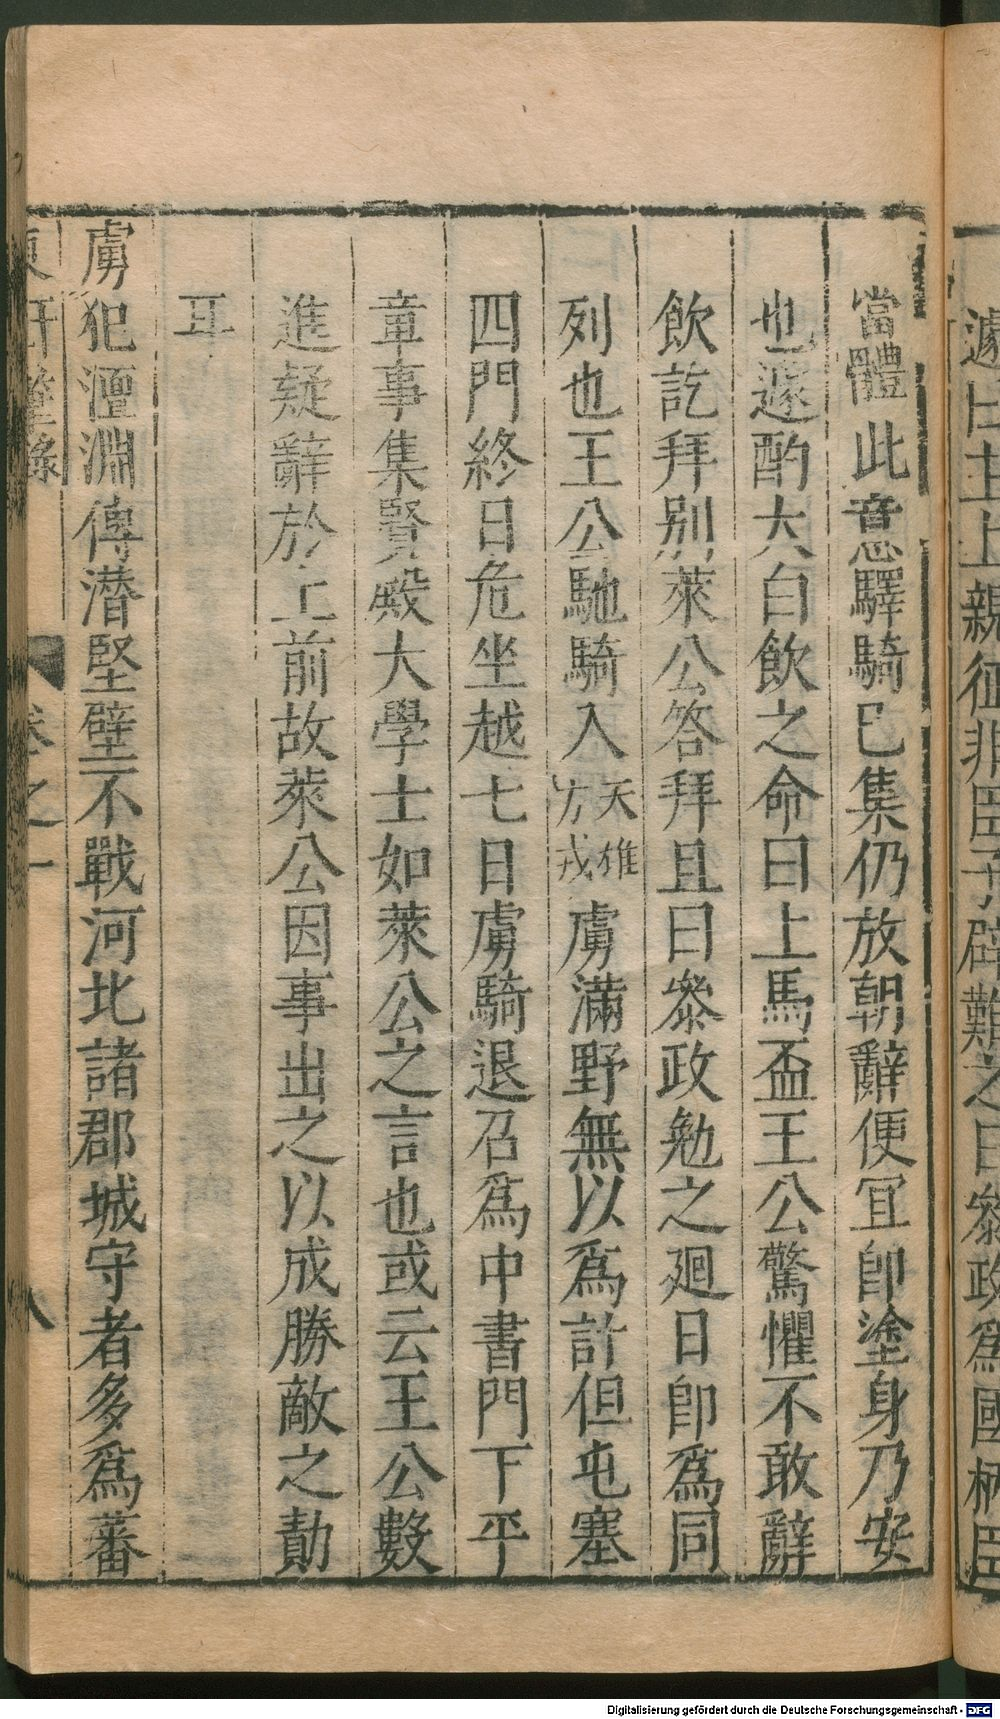 遽曰主上親征非臣子辟難之日參政爲國柄臣
當體此意驛騎已集仍放朝辭便宜卽塗身乃安
也遽酌大白飲之命曰上馬盃王公驚懼不敢辭
飲訖拜別萊公答拜且曰參政勉之廻日卽爲同
列也王公馳騎入天雄方戎虜滿野無以爲計但屯塞
四門終日危坐越七日虜騎退召爲中書門下平
章事集賢殿大學士如萊公之言也或云王公數
進疑辭於上前故萊公因事出之以成勝敵之勣
耳
虜犯澶淵傳潛堅壁不戰河北諸郡城守者多爲蕃
東軒筆錄 卷之一 八
Digitalisierung gefördert durch die Deutsche Forschungsgemeinschaft - DFG